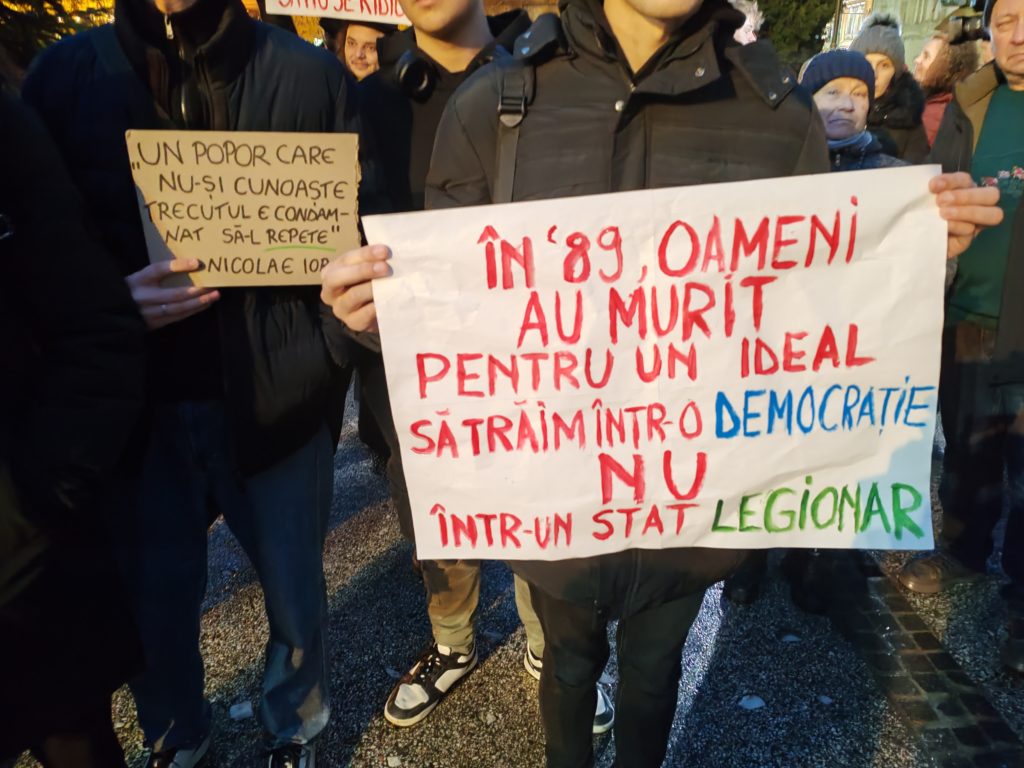 SE RIDIC
„UN POPOR CARE
NU-ȘI CUNOAȘTE
TRECUTUL E CONDAM-
NAT SĂ-L REPETE"
NICOLAE IOR
ÎN '89, OAMENI
AU MURIT
PENTRU UN IDEAL
SĂ TRĂIM ÎNTR-O DEMOCRAȚIE
NU
ÎNTR-UN STAT LEGIONAR